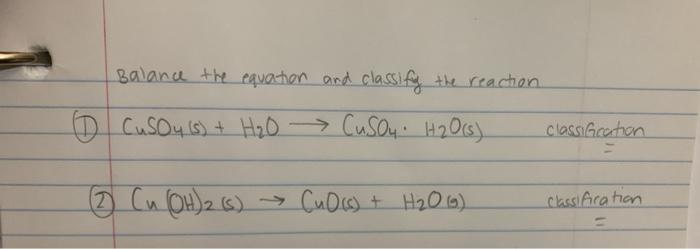 Balance the equation and classify the reaction
① CuSO4(s) + H2O → CuSO4 · H2O(s) classification =
② Cu(OH)2(s) → CuO(s) + H2O(g) classification =